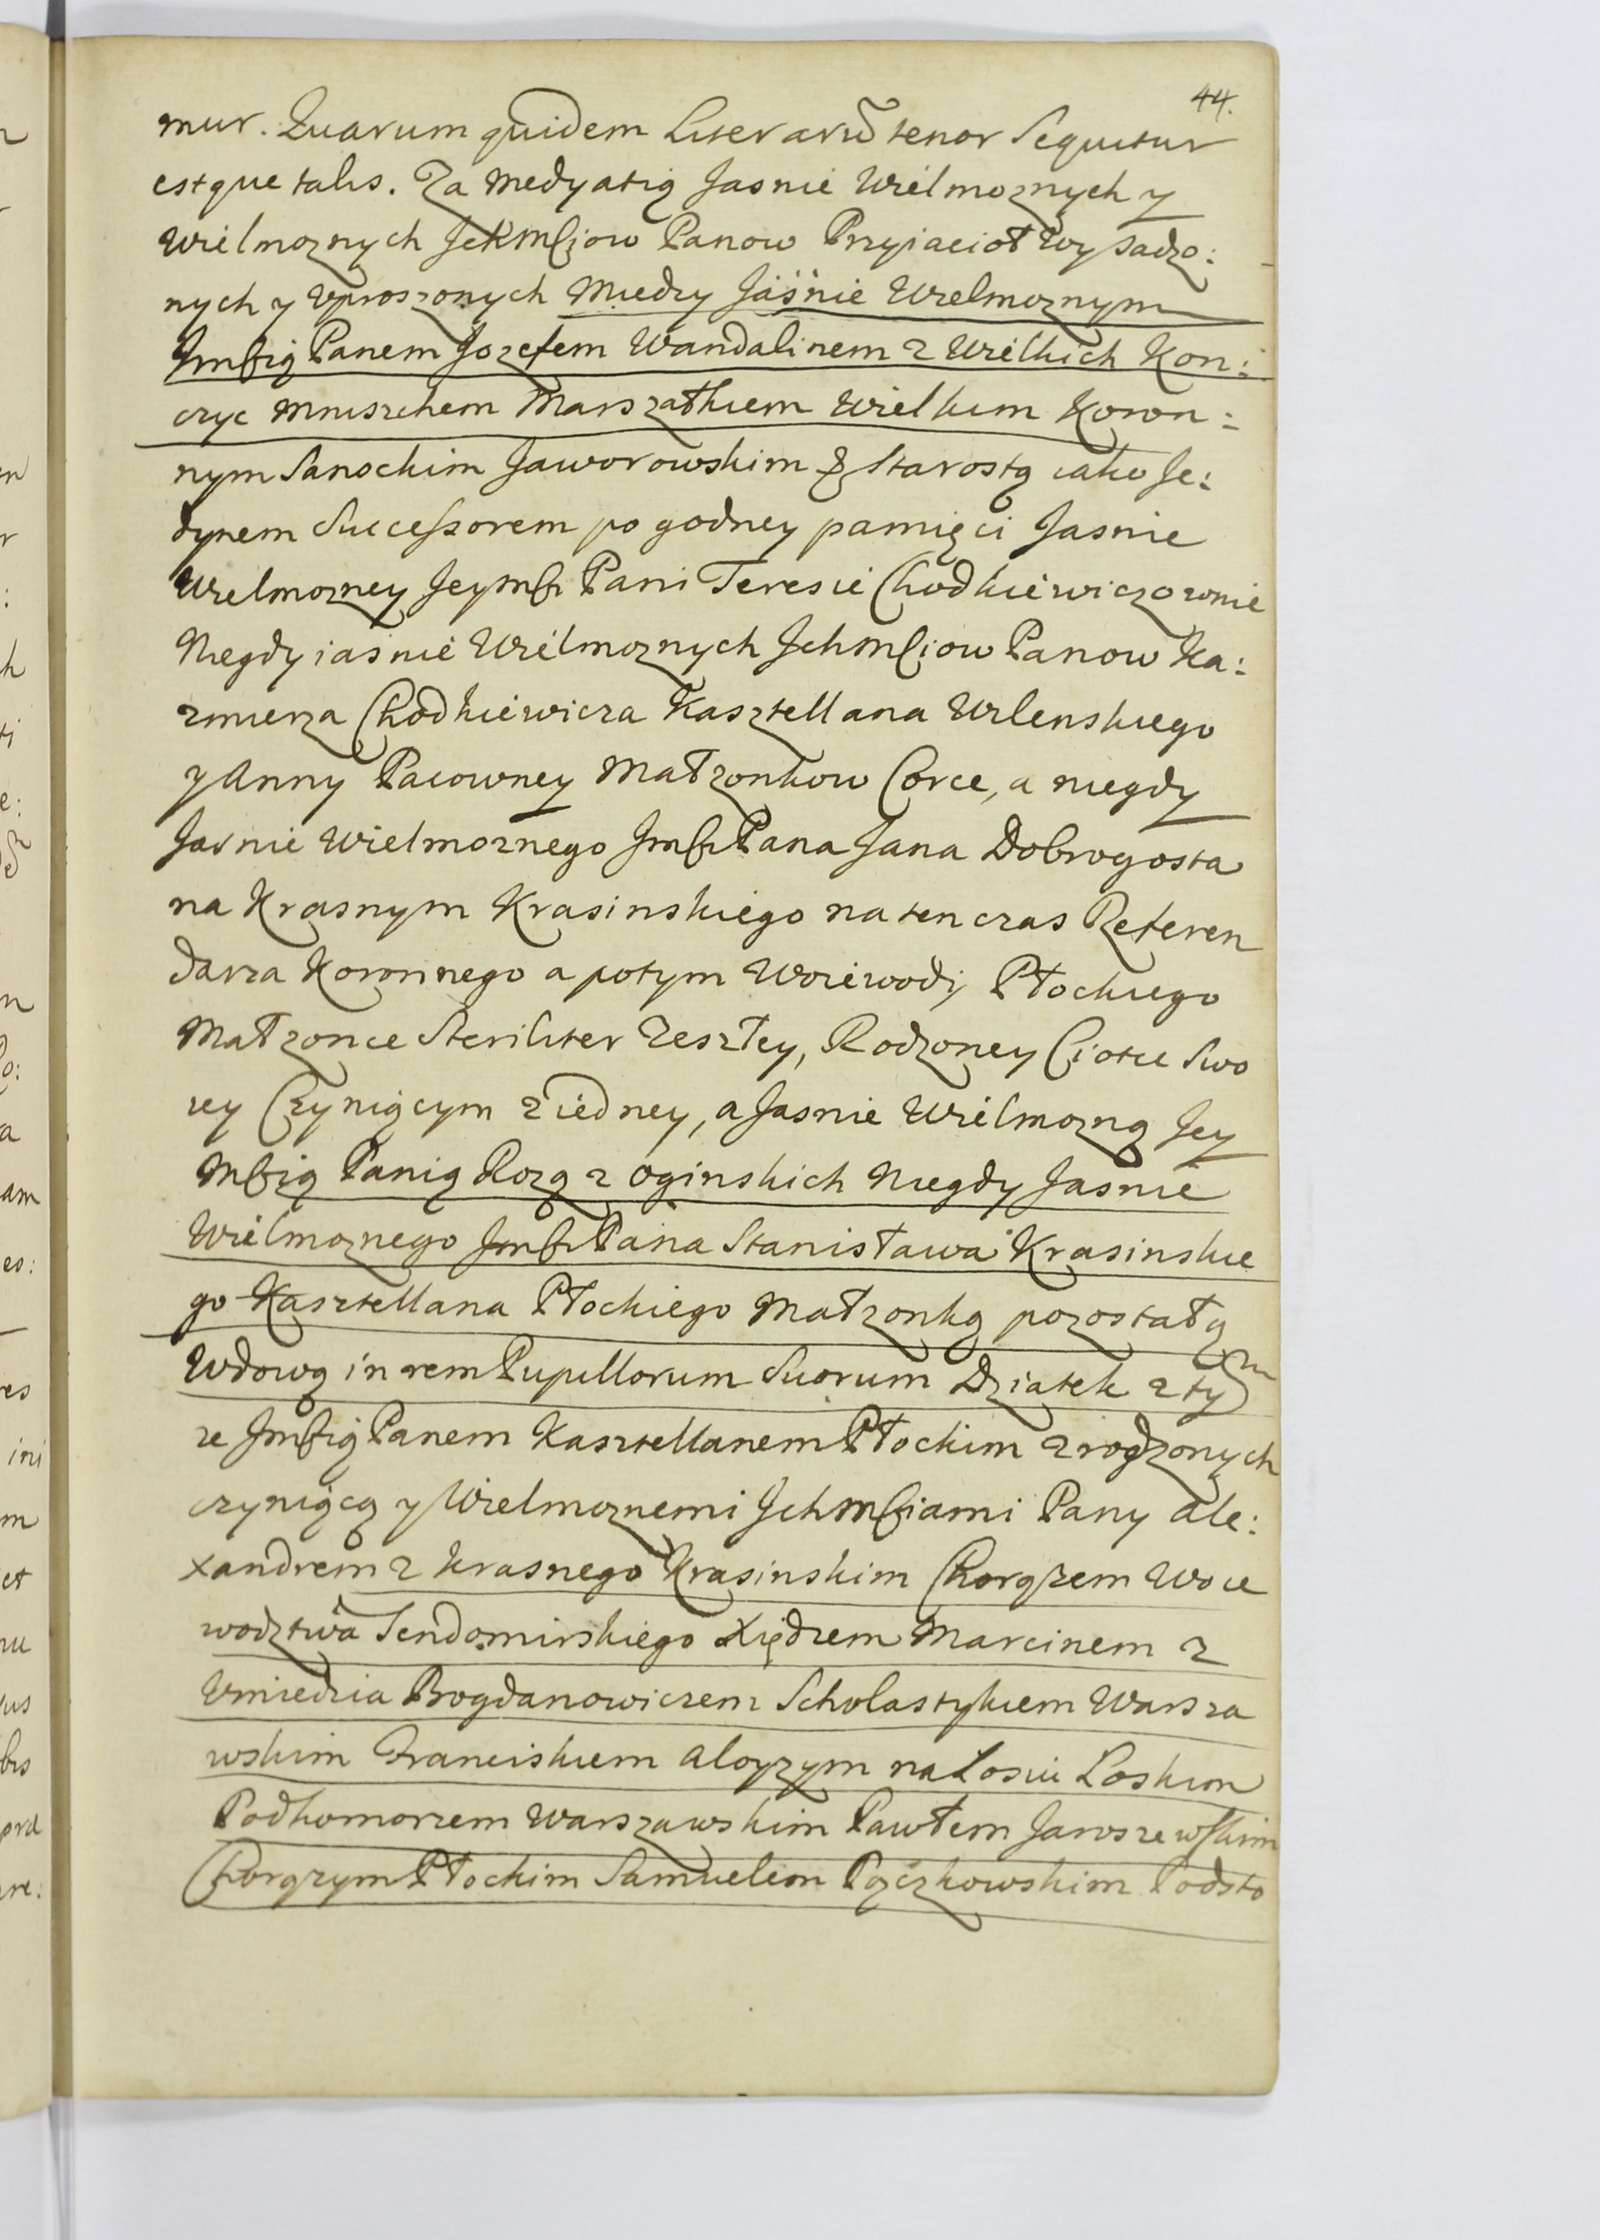 44.
mur. Quarum quidem Literarũ tenor Sequitur
estque talis. Za Medyatią Jasnie Wielmoznych y
Wielmoznych JchMściow Panow Przyiacioł Wysadzo:
nych y Uproszonych Miedzy Jaśnie Wielmoznym
Jmścią Panem Jozefem Wandalinem z Wielkich Kon:
czyc Mniszchem Marszałkiem Wielkim Koron:
nym Sanockim Jaworowskim & Starostą iako Je:
dynem Successorem po godney pamięci Jasnie
Wielmozney JeyMści Pani Teresie Chodkiewiczownie
Niegdy iasnie Wielmoznych JchMściow Panow Ka:
zmierza Chodkiewicza Kasztellana Wilenskiego
y Anny Pacowney Małzonkow Corce, a niegdy
Jasnie Wielmoznego Jmści Pana Jana Dobrogosta
na Krasnym Krasinskiego na ten czas Referen
darza Koronnego a potym Woiewody Płockiego
Małzonce Steriliter Zeszłey, Rodzoney Ciotce Swo
iey Czyniącym z iedney, a Jasnie Wielmozną Jey
Mścią Panią Rozą z Oginskich Niegdy Jasnie
Wielmoznego Jmści Pana Stanisława Krasinskie
go Kasztellana Płockiego Małzonką pozostałą
Wdową in rem Pupillorum Suorum Dziatek z tym
ze Jmścią Panem Kasztellanem Płockim zrodzonych
czyniącą y Wielmoznemi JchMściami Pany Ale:
xandrem z Krasnego Krasinskim Chorązem Woie
wodztwa Sendomirskiego Xiędzem Marcinem z
Umiedzia Bogdanowiczem Scholastykiem Warsza
wskim Franciskiem Aloyzym na Łosiu Łoskim
Podkomorzem Warszawskim Pawłem Jaroszewskim
Chorązym Płockim Samuelem Pączkowskim Podsto